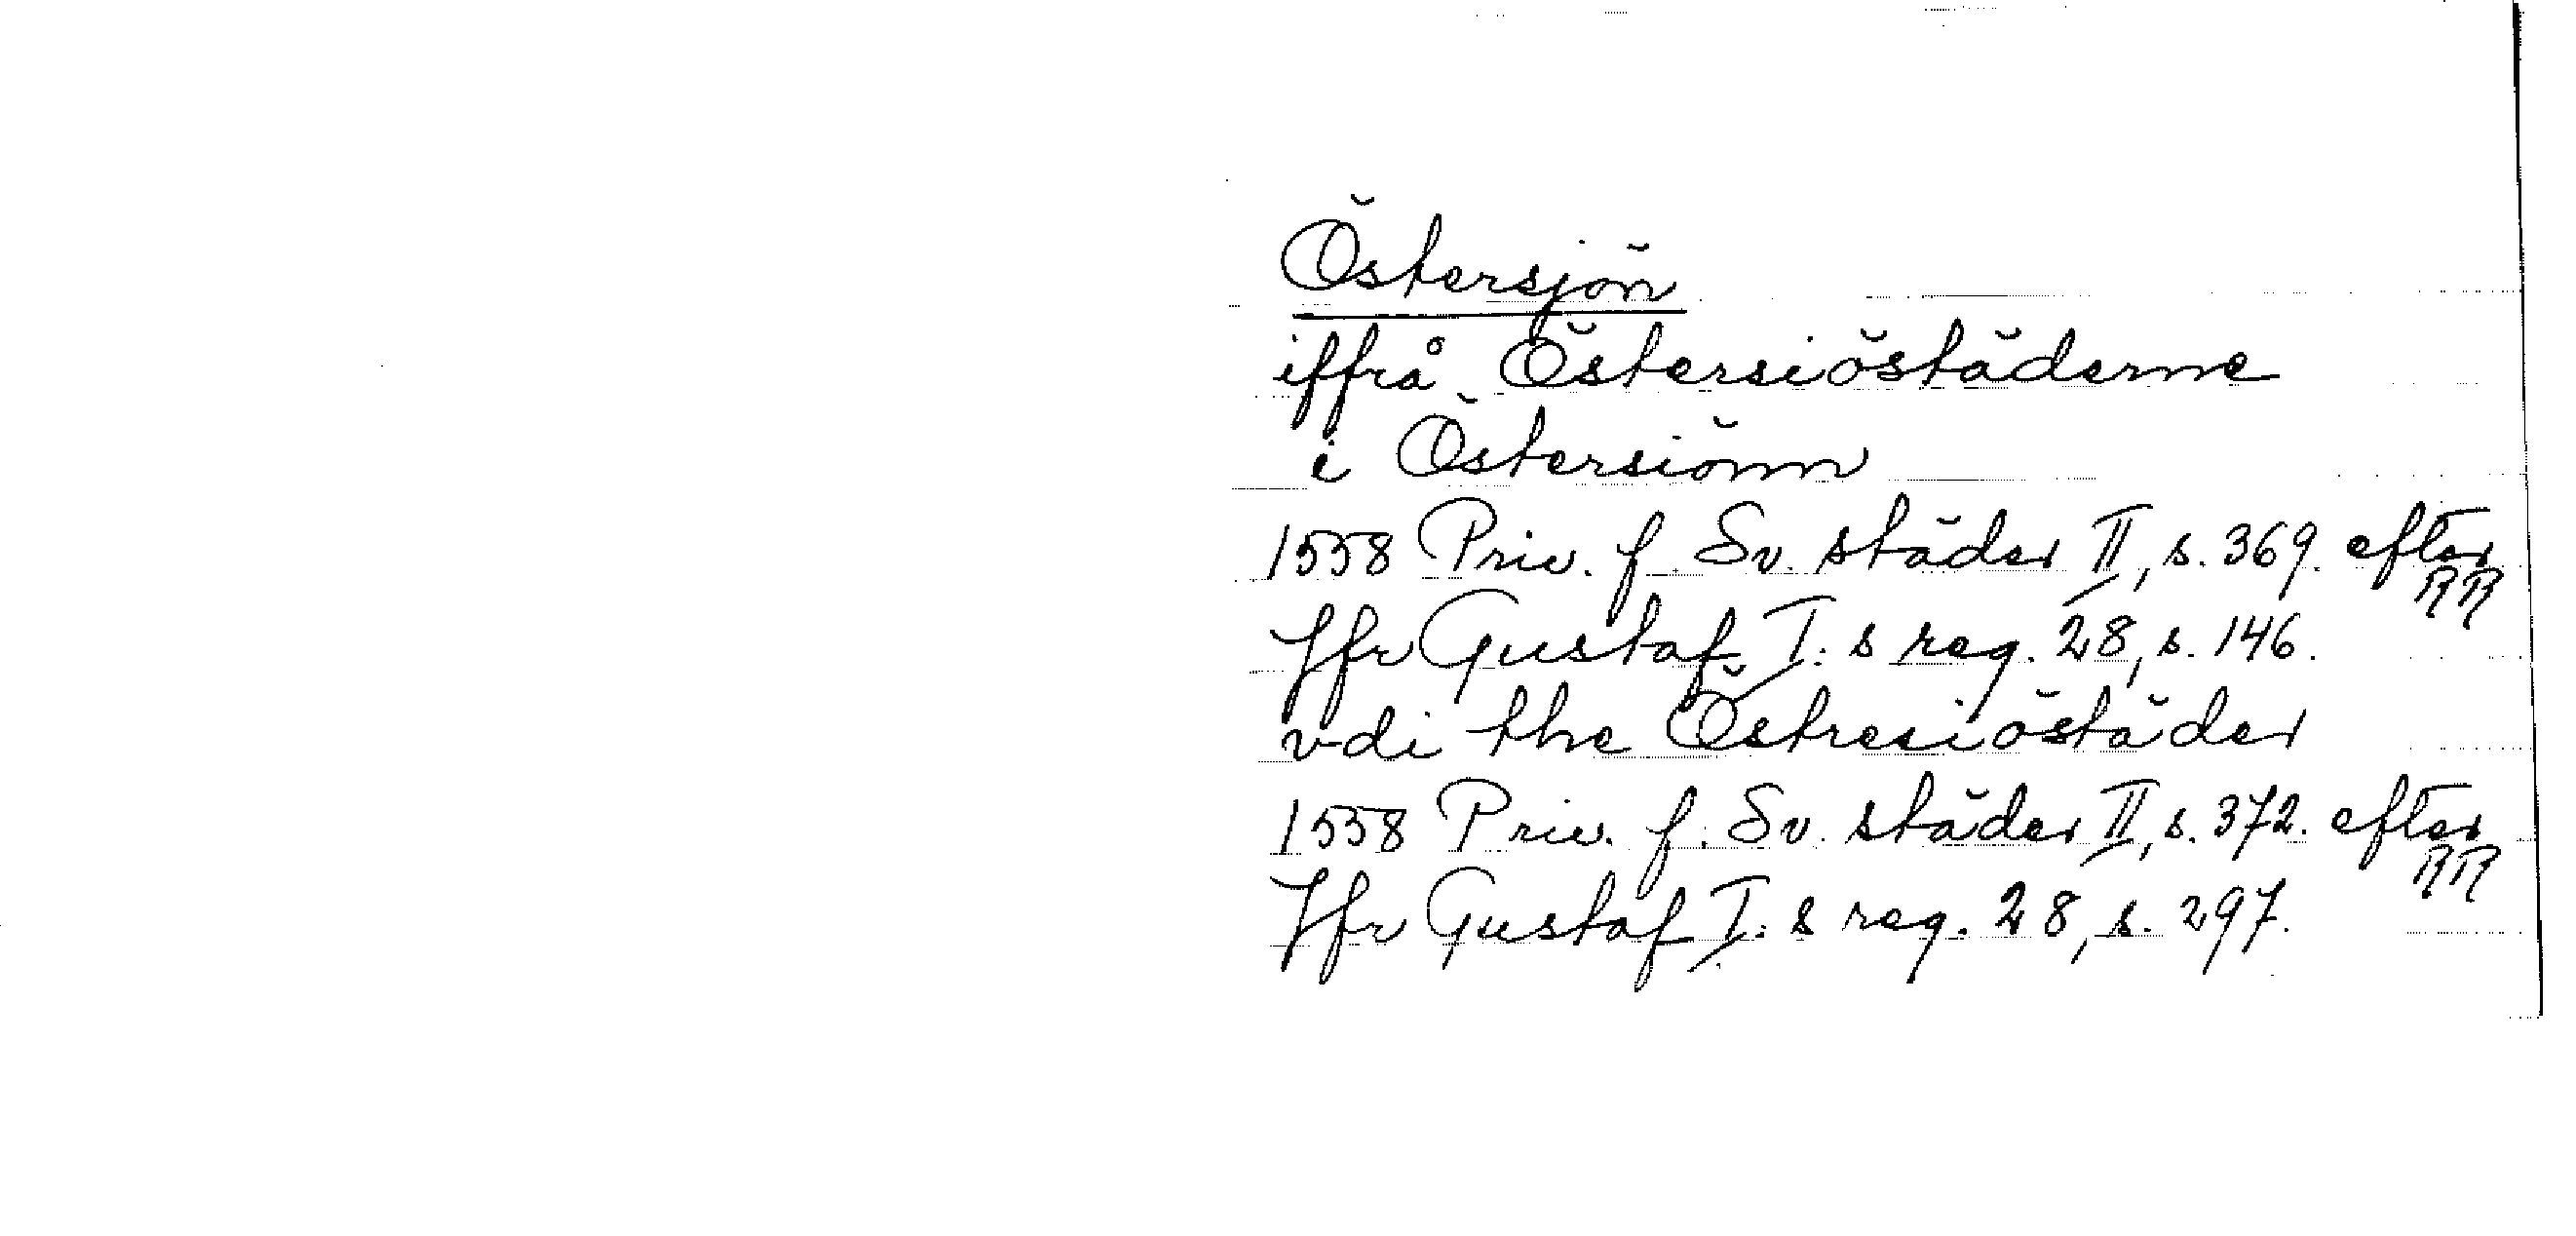 Östersjön
iffrå Östersiöstäderne
i Östersiönn
1558 Priv. f. Sv. städer II, s. 369. efter RR
Jfr Gustaf I:s reg. 28, s. 146.
vdi the Östresiöstäder
1558 Priv. f. Sv. städer II, s. 372. efter RR
Jfr Gustaf I:s reg. 28, s. 297.